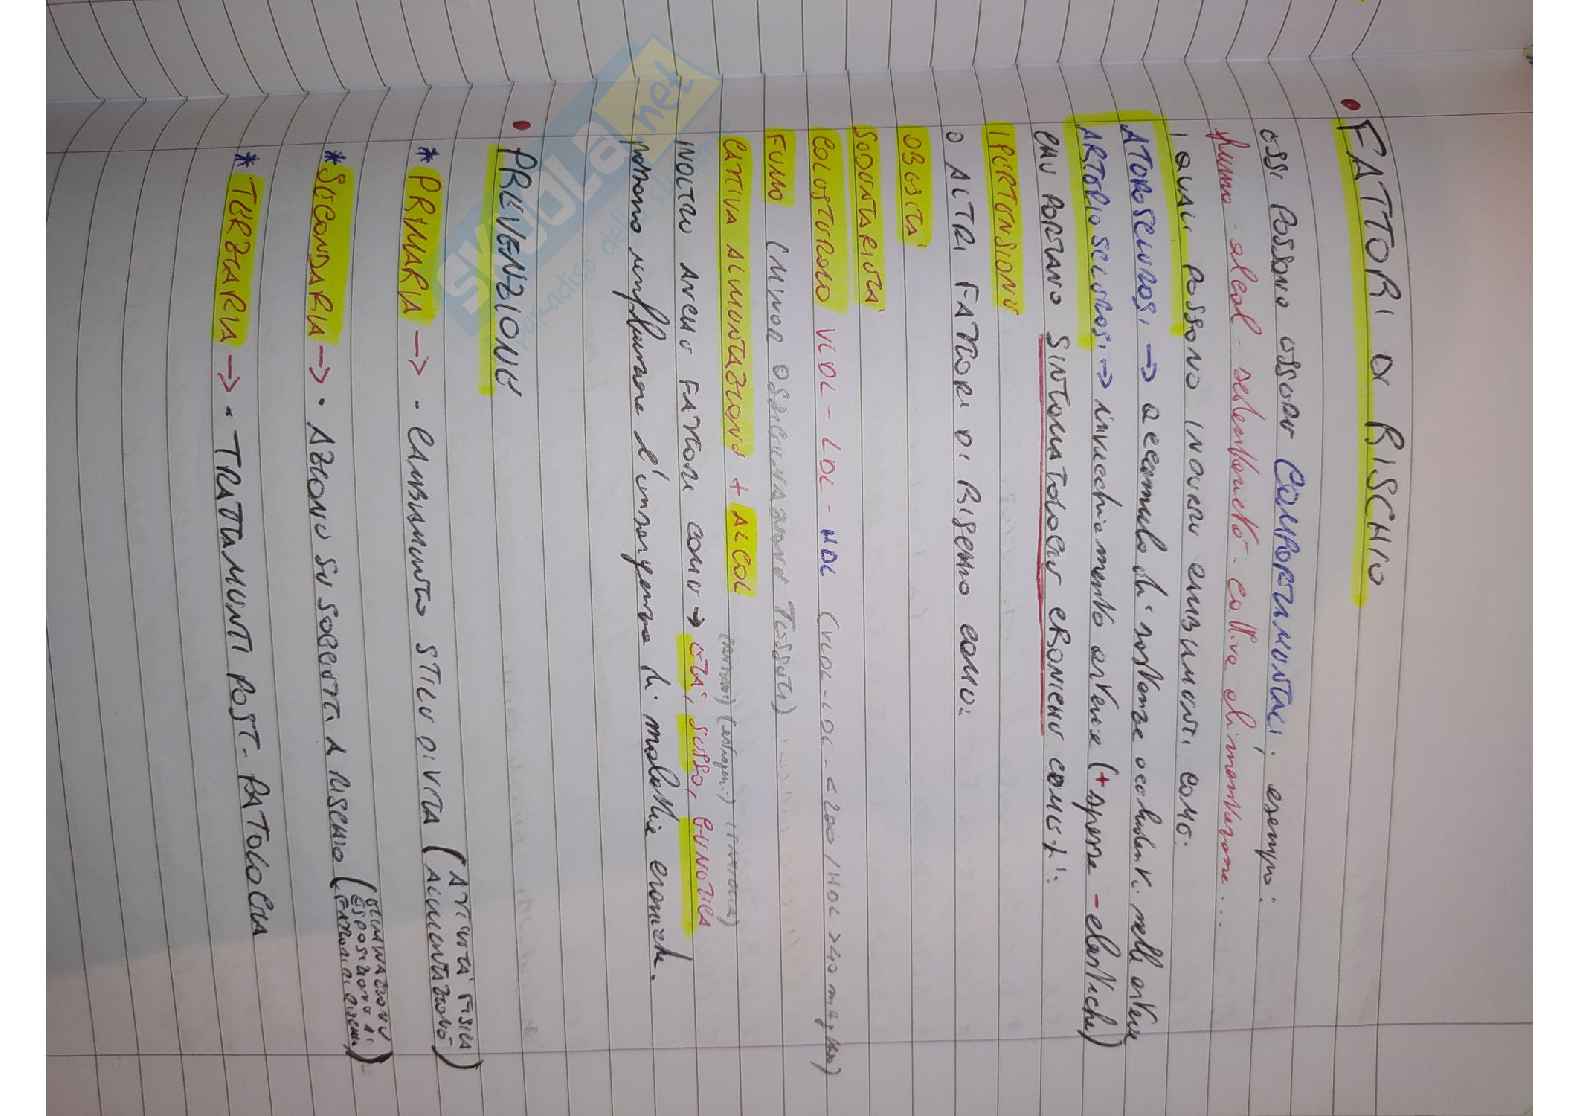 • FATTORI DI RISCHIO
essi possono essere COMPORTAMENTALI, esempio:
fumo - alcol - sedentarietà - cattiva alimentazione...
I QUALI POSSONO INDURRE CAMBIAMENTI COME:
ATEROSCLEROSI → accumulo di sostanze occludenti nelle arterie
ARTERIOSCLEROSI → invecchiamento arterie (+spesse - elastiche)
CHE PORTANO SINTOMATOLOGIE CRONICHE COME
O ALTRI FATTORI DI RISCHIO COME:
IPERTENSIONE
OBESITÀ
SEDENTARIETÀ
COLESTEROLO VLDL - LDL - HDL (VLDL-LDL- <200/HDL >40 mg/
FUMO (MINOR OSSIGENAZIONE TESSUTI)
CATTIVA ALIMENTAZIONE + ALCOL
(estrogeni)
INOLTRE ANCHE FATTORI COME → ETÀ, SESSO, GENETICA
possono influenzare l'insorgenza di malattie croniche.
• PREVENZIONE
* PRIMARIA → • CAMBIAMENTO STILE DI VITA (ATTIVITÀ FISICA
ALIMENTAZIONE)
* SECONDARIA → • AZIONE SU SOGGETTI A RISCHIO (ELIMINAZIONE
ESPOSIZIONE AI
FATTORI DI RISCHIO)
* TERZIARIA → • TRATTAMENTI POST-PATOLOGIA
SKUOLA.net